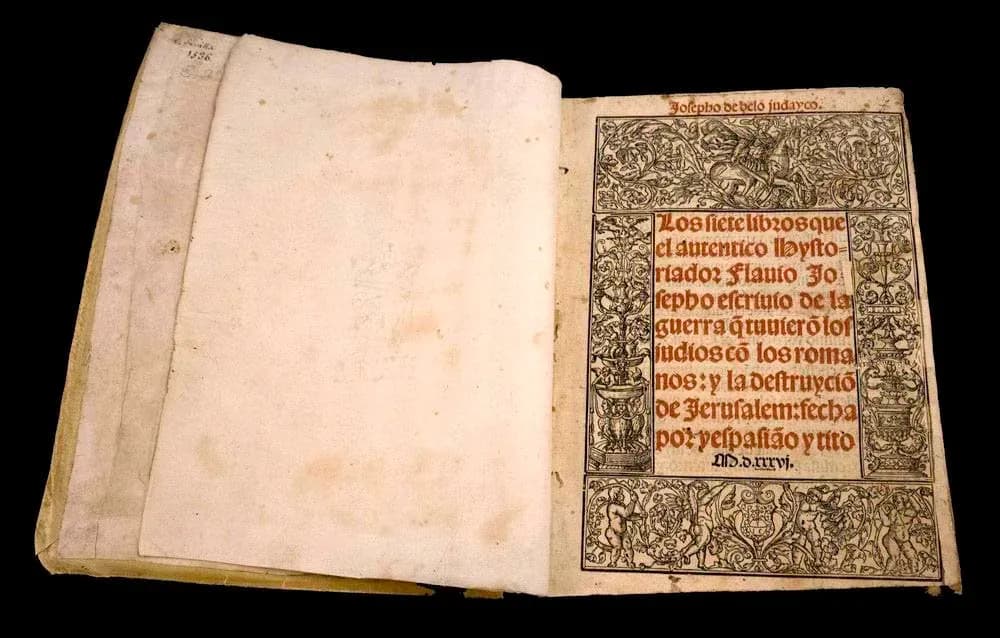 1536
Josepho de belo judayco.
Los siete libros que
el autentico Hysto-
riador Flauio Jo
sepho escriuio de la
guerra q̃ tuuierõ los
judios cõ los roma
nos: y la destruyciõ
de Jerusalem: fecha
por vespasiãno y tito
M.d.xxxvj.